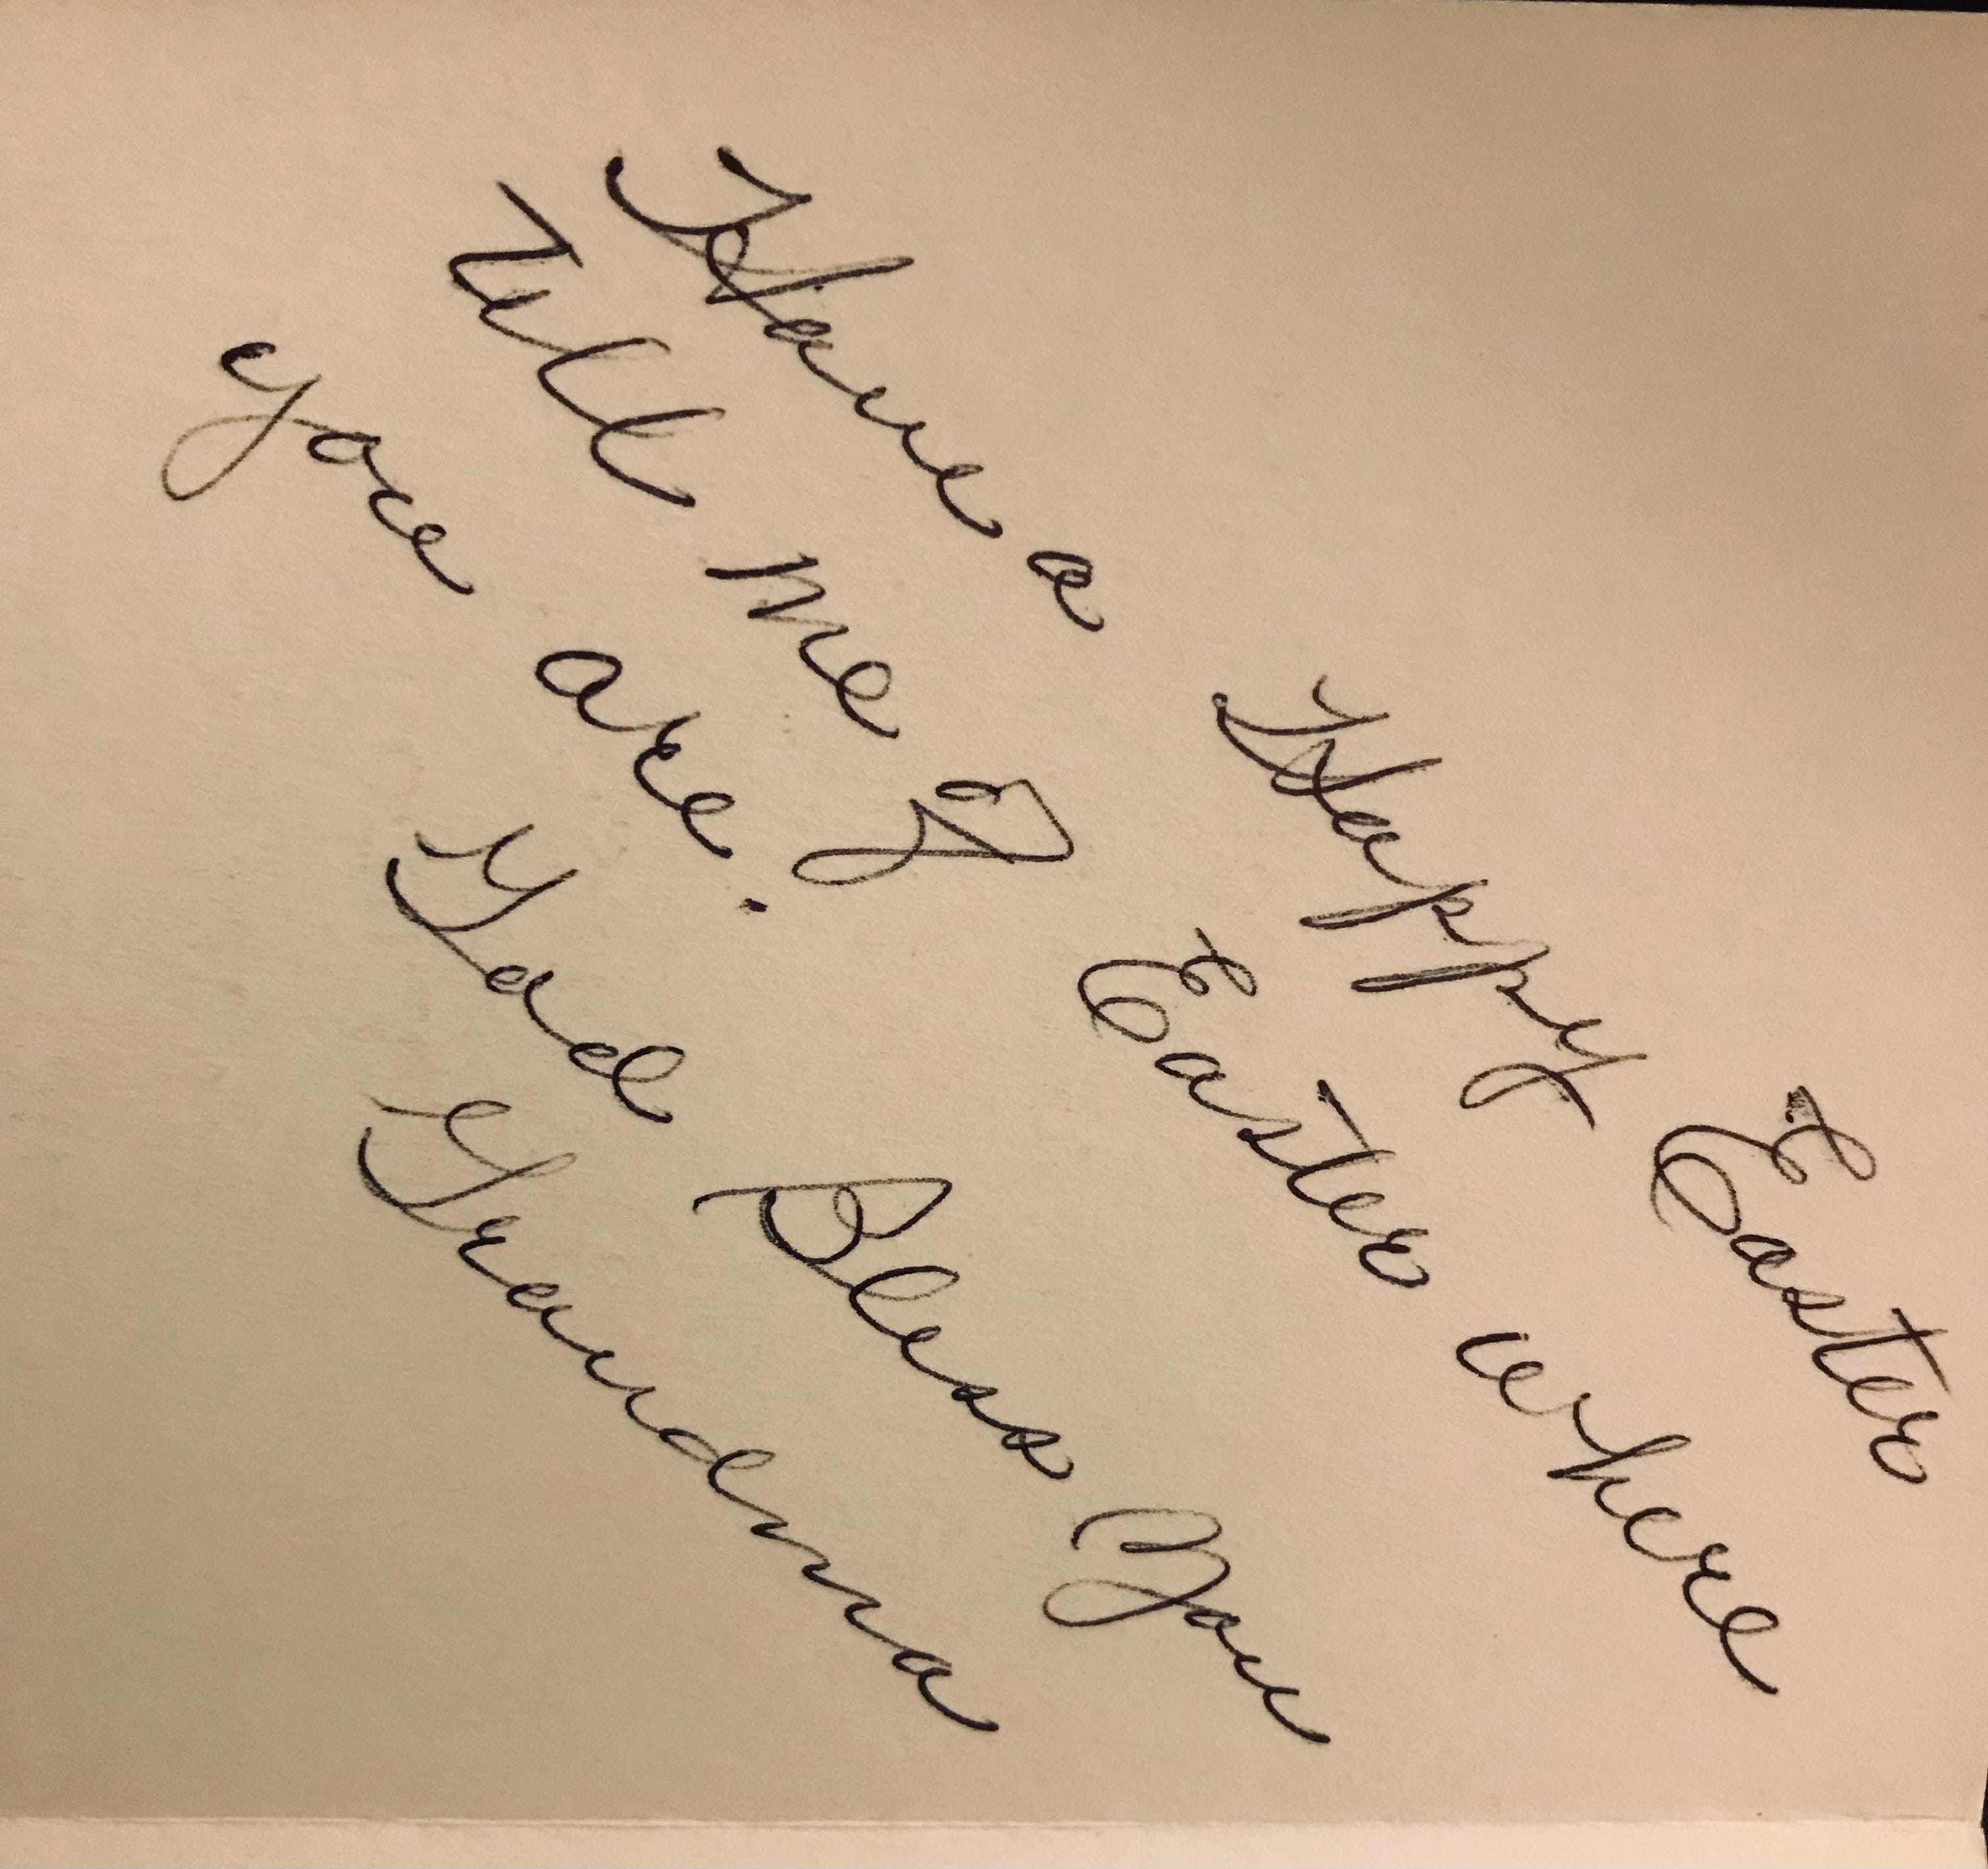 Have a Happy Easter
Tell me Easter where
you are.
God Bless You
Grandma